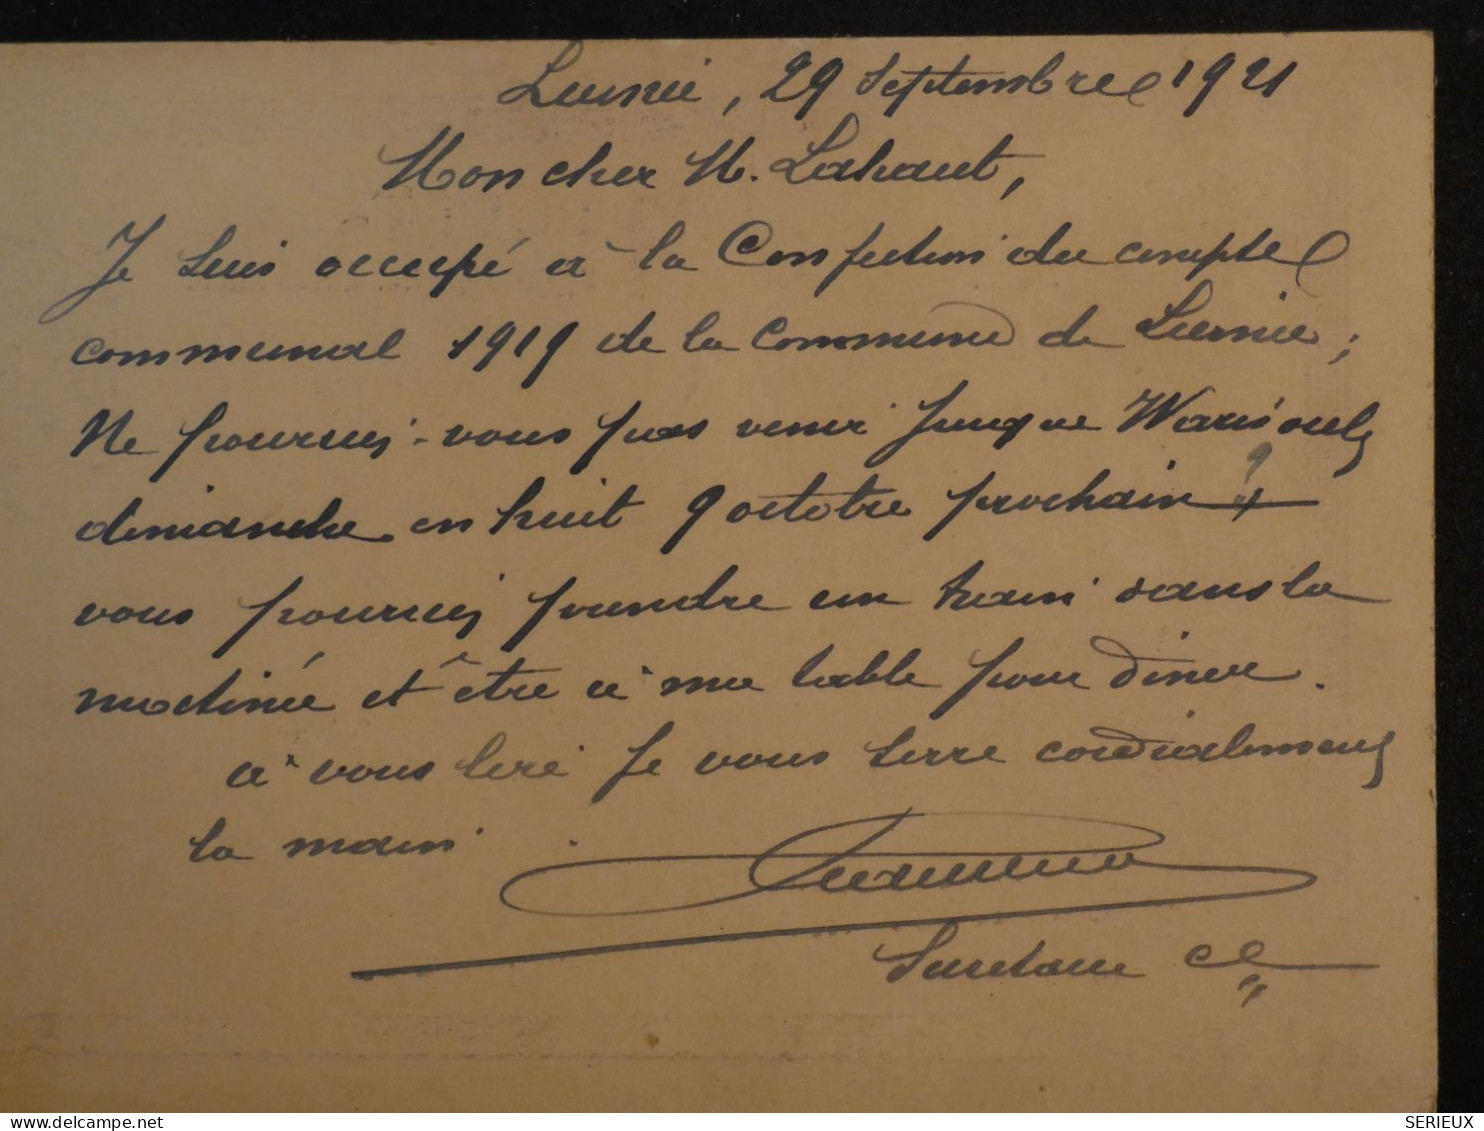 29 Septembre 1921
Mon cher M. Lahaut,
Je suis occupé à la Confection du compte
communal 1919 de la Commune de
Ne pourriez-vous pas venir jusque
dimanche en huit 9 octobre prochain ?
vous pourriez prendre un train dans la
matinée et être à ma table pour diner.
à vous lire je vous serre cordialement
la main
Secrétaire Cal
SERIEUX
delcampe.net